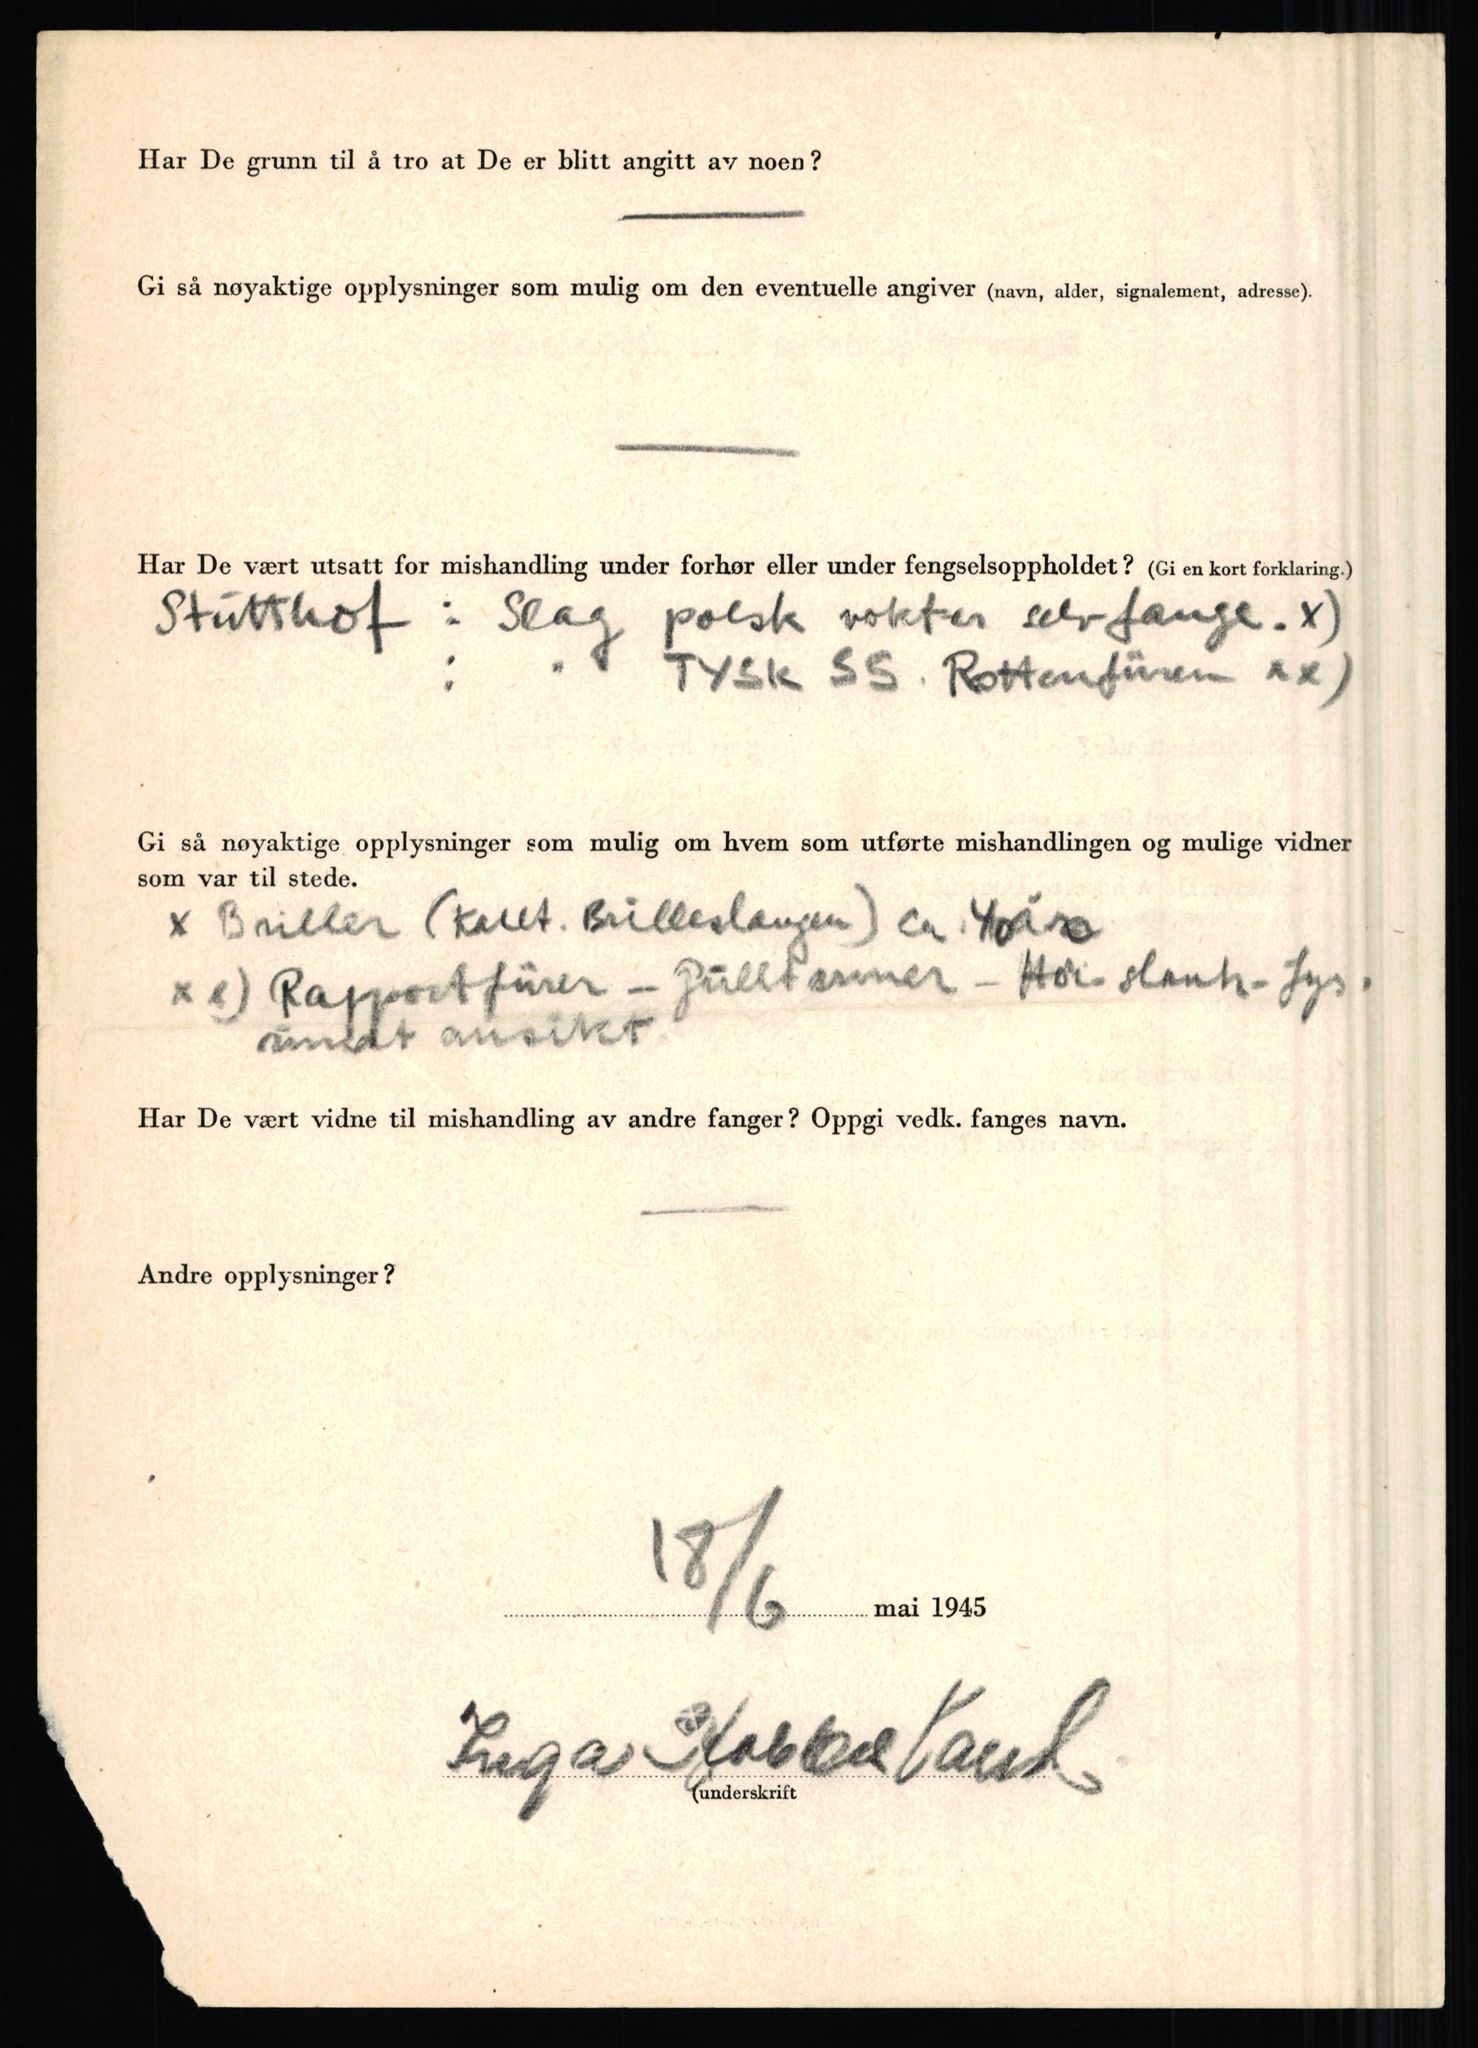 Har De grunn til å tro at De er blitt angitt av noen?
Gi så nøyaktige opplysninger som mulig om den eventuelle angiver (navn, alder, signalement, adresse).
Har De vært utsatt for mishandling under forhør eller under fengselsoppholdet? (Gi en kort forklaring.)
Stutthof : Slag polsk vokter selv fange. x)
: " TYSK SS. Rottenfürer x x)
Gi så nøyaktige opplysninger som mulig om hvem som utførte mishandlingen og mulige vidner
som var til stede.
x Briller (kalt. Brilleslangen) ca. 40 år
x x) Rapportfürer - Gulltenner - Høi - slank - lys.
rundt ansikt.
Har De vært vidne til mishandling av andre fanger? Oppgi vedk. fanges navn.
Andre opplysninger?
18/6 mai 1945
Inga
(underskrift